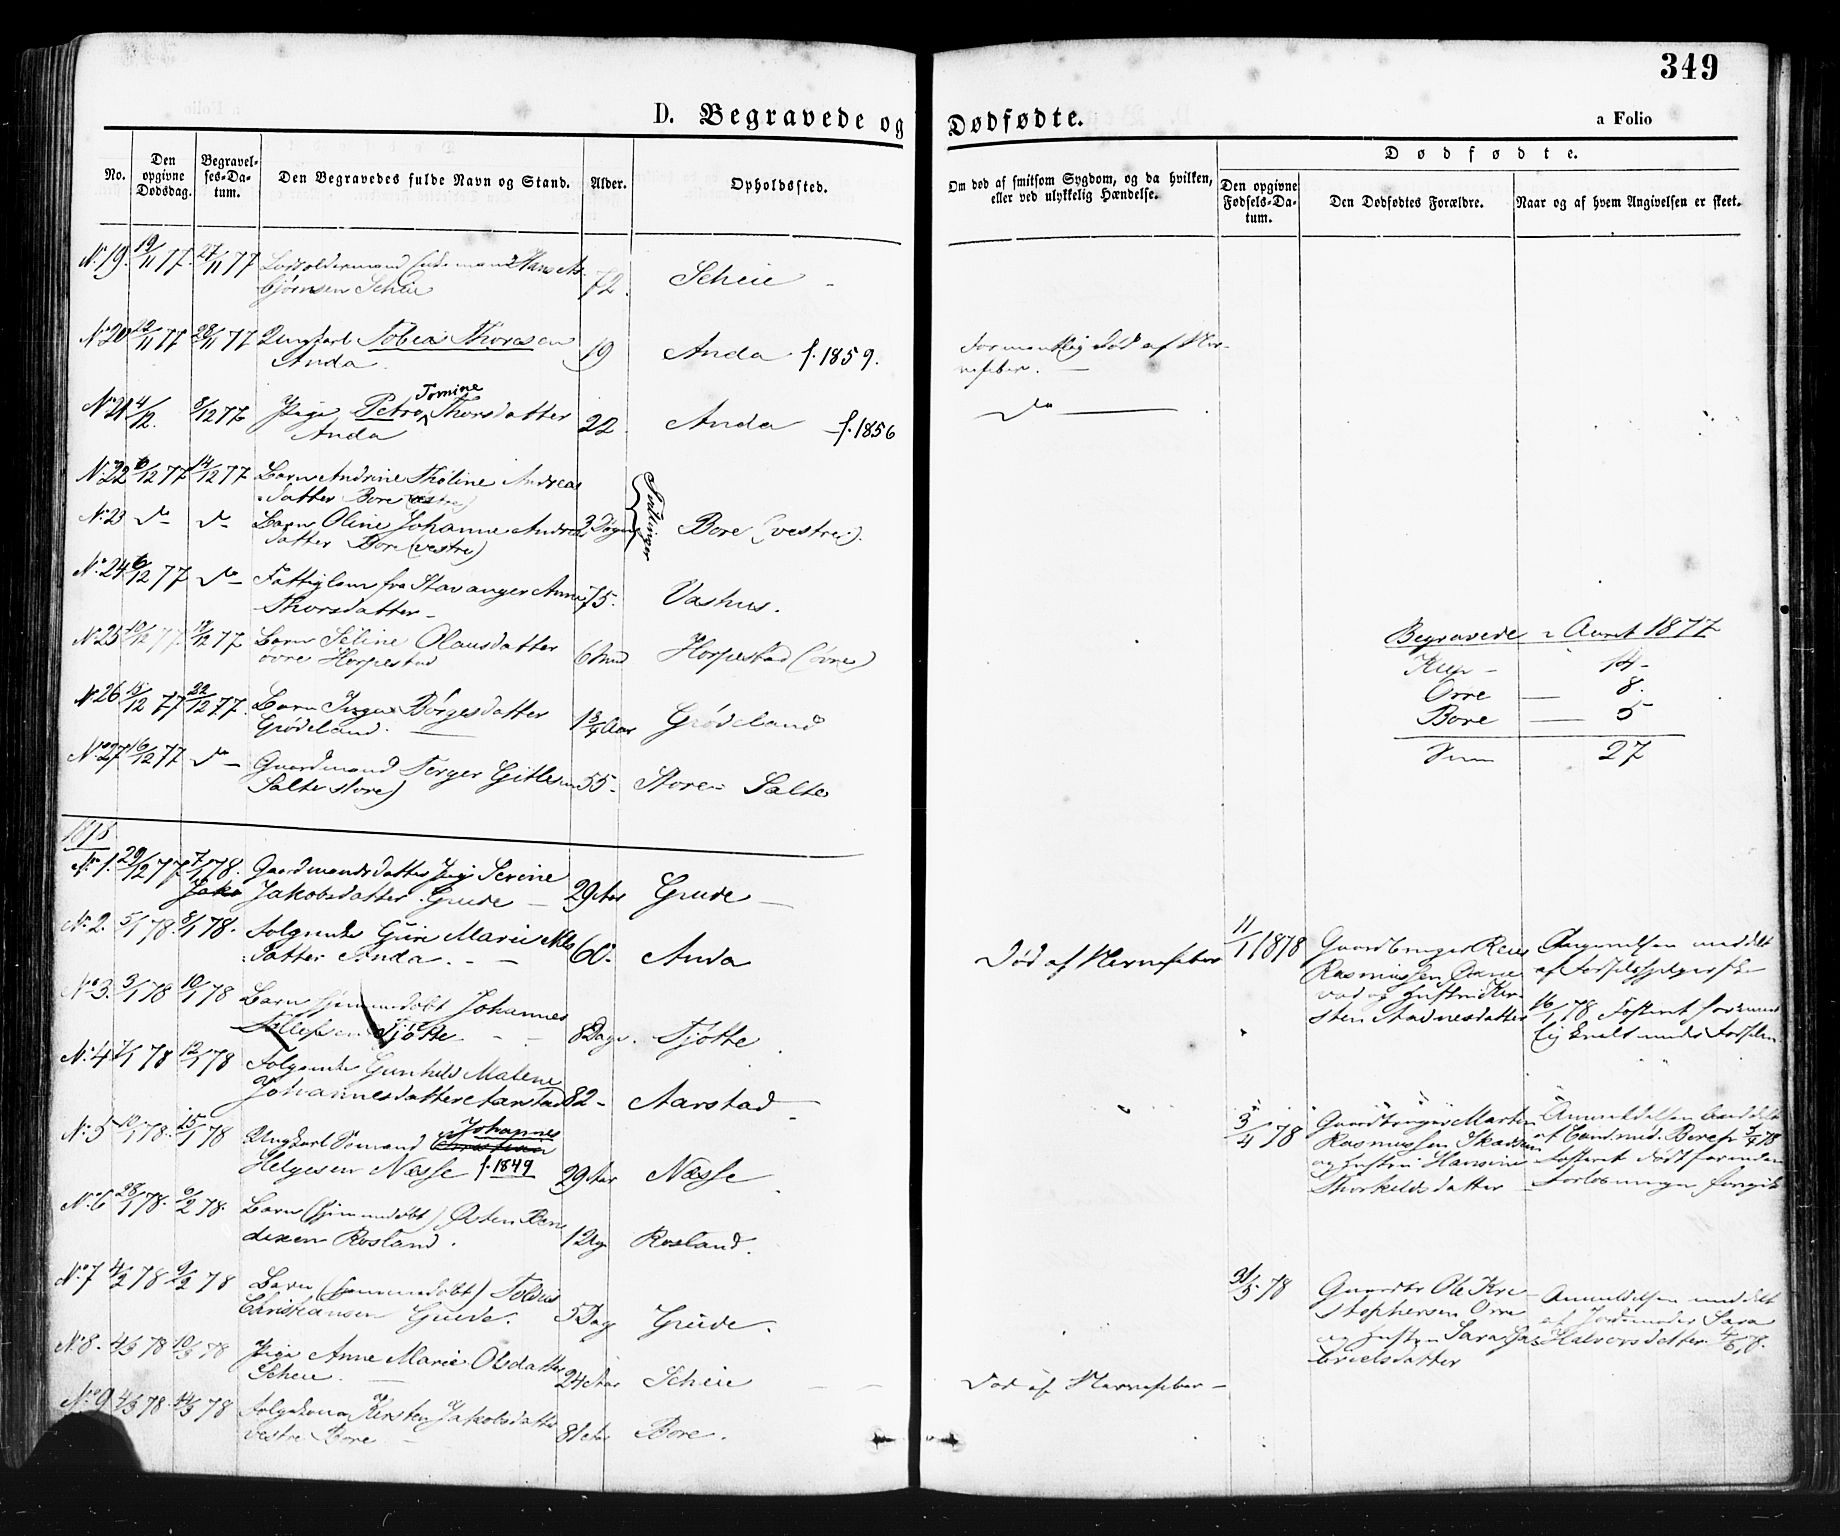 349
D. Begravede og Dødfødte.
a Folio
No.
Den opgivne Dødsdag.
Begravelses-Datum.
Den Begravedes fulde Navn og Stand.
Alder.
Opholdssted.
Om død af smitsom Sygdom, og da hvilken, eller ved ulykkelig Hændelse.
Dødfødte.
Den opgivne Fødsels-Datum.
Den Dødfødtes Forældre.
Naar og af hvem Angivelsen er skeet.
No 19. 19/11 77. 27/11 77
72. Scheie -
No 20 22/11 77 28/11 77 Ungkarl Tobias Thorsen
Anda. 19 Anda f. 1859.
død af Ner-
vefeber.
Tomine
No 21 4/12. 8/12 77 Pige Petra Thorsdatter
Anda 22 Anda f. 1856
Do
No 22 10/12 77 14/12 77 Barn Andrine Tholine Andreas
datter Bore (vestre)
Tvillinger
No 23 do do Barn Oline Johanne Andrea
datter Bore (vestre) 3 Døgn Bore (vestre).
No 24 6/12 77 do Fattiglem fra Stavanger Anna
Thorsdatter - 75. Vashus.
No 25 10/12 77. 19/12 77 Barn Seline Olausdatter
øvre Horpestad 6 Mnd Horpestad (øvre)
No 26 15/12 77 22/12 77. Barn Inga Børgesdatter
Grødeland. 1 3/4 Aar Grødeland
No 27 16/12 77 do Gaardmand Terger Gitlesen
Salte store) 55 - Store Salte
Begravede i Aaret 1877
Klep - 14 -
Orre - 8.
Bore - 5
Sum 27
1878.
No 1. 29/12 77 7/1 78. Gaardmandsdatter Pige Serine
Jako Jakobsdatter Grude - 29 Aar Grude -
No 2. 5/1 78. 8/1 78. Folgemke Guri Marie Nils
datter Anda. - 60. Anda
Død af Nervefeber
No 3. 3/1 78 10/1 78 Barn hjemmedøbt Johannes
Tollefsen Tjøtte - 8 Dage. Tjøtte
No 4 7/1 78 12/1 78 Gunhild Malene
Johannesdatter Aarstad 82 - Aarstad -
No 5 10/1 78. 15/1 78 Ungkarl Sømand Johannes
Helgesen Næsse f. 1849 29 Aar Næsse
No 6 28/1 78. 6/2 78. Barn (hjemmedøbt) Østen Ben
dixen Rosland. 12 Rosland.
No 7 4/2 78 9/2 78 Barn (hjemmedøbt) Tobias
Christiansen Grude. 5 Dag Grude.
No 8. 4/3 78 10/3 78 Pige Anne Marie Olsdatter
Scheie. - 24 Aar Scheie - -
Død af Nervefeber -
No 9 4/3 78. 14/3 78 Kirsten Jakobsdatter
vestre Bore - 81 Aar Bore.
11/1 1878 Gaardbruger Reier
Rasmussen
vad og Hustru Kir-
sten Aadnesdatter
Angivelsen meddelt
af
16/1 78. Fosteret forment
lig kvalt under Fødslen
3/4 78 Gaardbruger Martin
Rasmussen
og Hustru Hansine
Thorkildsdatter
Anmeldelsen meddelt
Fosteret dødt førinden
Forløsningen foregik
31/5 78 Gaardbr Ole Kri
stophersen Orre
og Hustru Sara Ga
brielsdatter
Anmeldelsen meddelt
af Jordmoder Sara
Halvorsdatter 4/6 78.